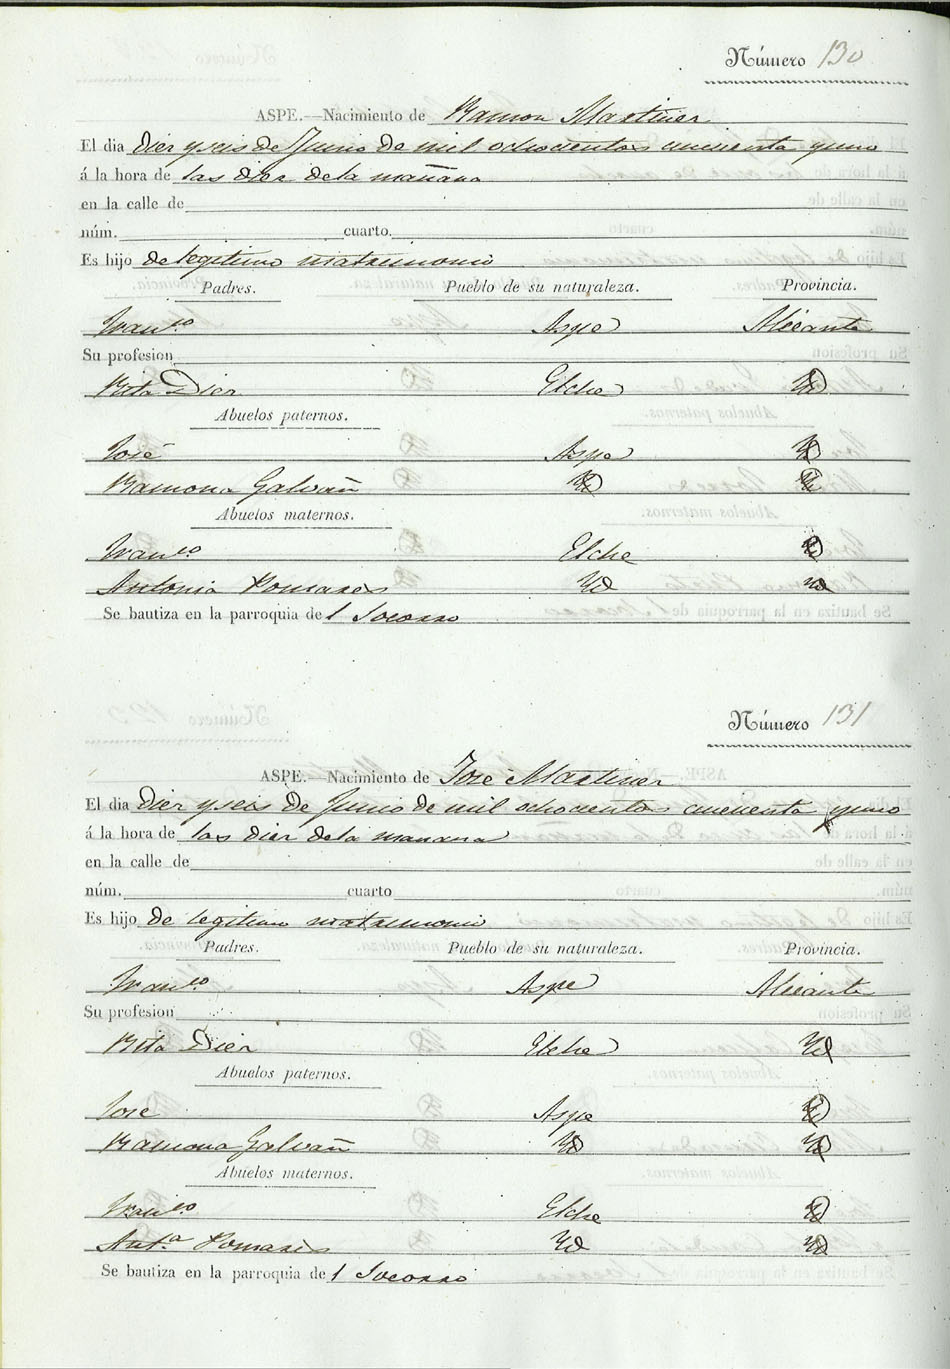 Número 130
ASPE.—Nacimiento de Ramon Martinez
El dia diez y seis de Junio de mil ochocientos cincuenta y uno
á la hora de las diez de la mañana
en la calle de
núm. cuarto.
Es hijo de legitimo matrimonio
Padres. Pueblo de su naturaleza. Provincia.
Franco Aspe Alicante
Su profesion
Rita Diez Elche Yd
Abuelos paternos.
José Aspe Yd
Ramona Galvañ Yd Yd
Abuelos maternos.
Franco Elche Yd
Antonia Pomares Yd Yd
Se bautiza en la parroquia del Socorro
Número 131
ASPE.—Nacimiento de José Martinez
El dia Diez y seis de Junio de mil ochocientos cincuenta y uno
á la hora de las diez de la manana
en la calle de
núm. cuarto
Es hijo de legitimo matrimonio
Padres. Pueblo de su naturaleza. Provincia.
Franco Aspe Alicante
Su profesion
Rita Diez Elche Yd
Abuelos paternos.
Jose Aspe Yd
Ramona Galvañ Yd Yd
Abuelos maternos.
Franco Elche Yd
Anta Pomares Yd Yd
Se bautiza en la parroquia del Socorro